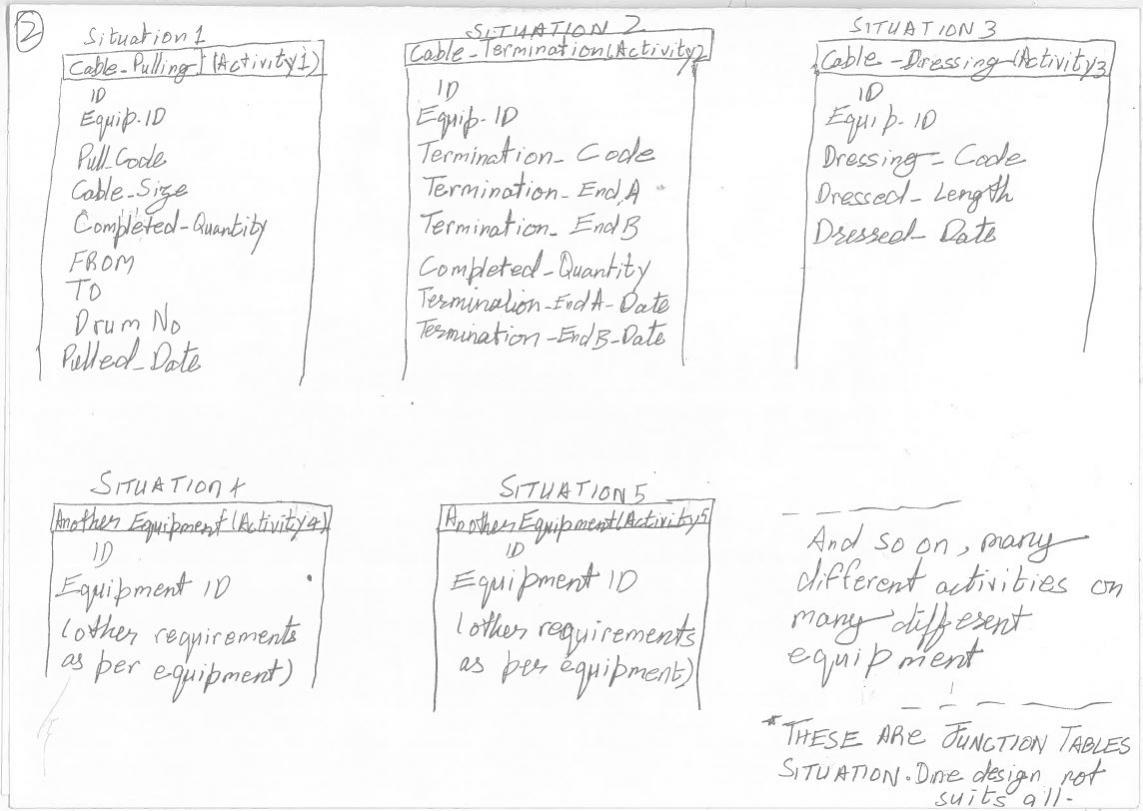 2
Situation 1
Cable_Pulling (Activity1)
ID
Equip.ID
Pull_Code
Cable_Size
Completed_Quantity
FROM
TO
Drum No
Pulled_Date
SITUATION 2
Cable_Termination(Activity2
ID
Equip.ID
Termination_Code
Termination_EndA
Termination_EndB
Completed_Quantity
Termination_EndA_Date
Termination_EndB_Date
SITUATION 3
Cable_Dressing(Activity3
ID
Equip.ID
Dressing_Code
Dressed_Length
Dressed_Date
SITUATION 4
Another Equipment(Activity4)
ID
Equipment ID
(other requirements
as per equipment)
SITUATION 5
Another Equipment(Activity5
ID
Equipment ID
(other requirements
as per equipment)
And so on, many
different activities on
many different
equipment
*THESE ARe JUNCTION TABLES
SITUATION. One design not
suits all.